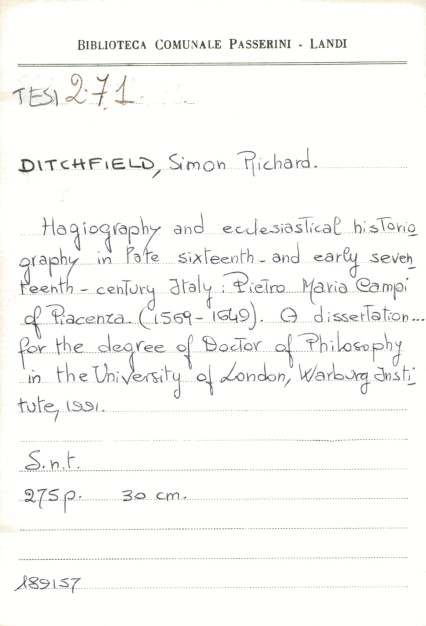 BIBLIOTECA COMUNALE PASSERINI - LANDI
TESI 271
DITCHFIELD, Simon Richard.
Hagiography and ecclesiastical historio
graphy in late sixteenth-and early seven
teenth-century Italy: Pietro Maria Campi
of Piacenza (1569-1649). A dissertation...
for the degree of Doctor of Philosophy
in the University of London, Warburg Insti
tute, 1991.
S.n.t.
275 p. 30 cm.
189157